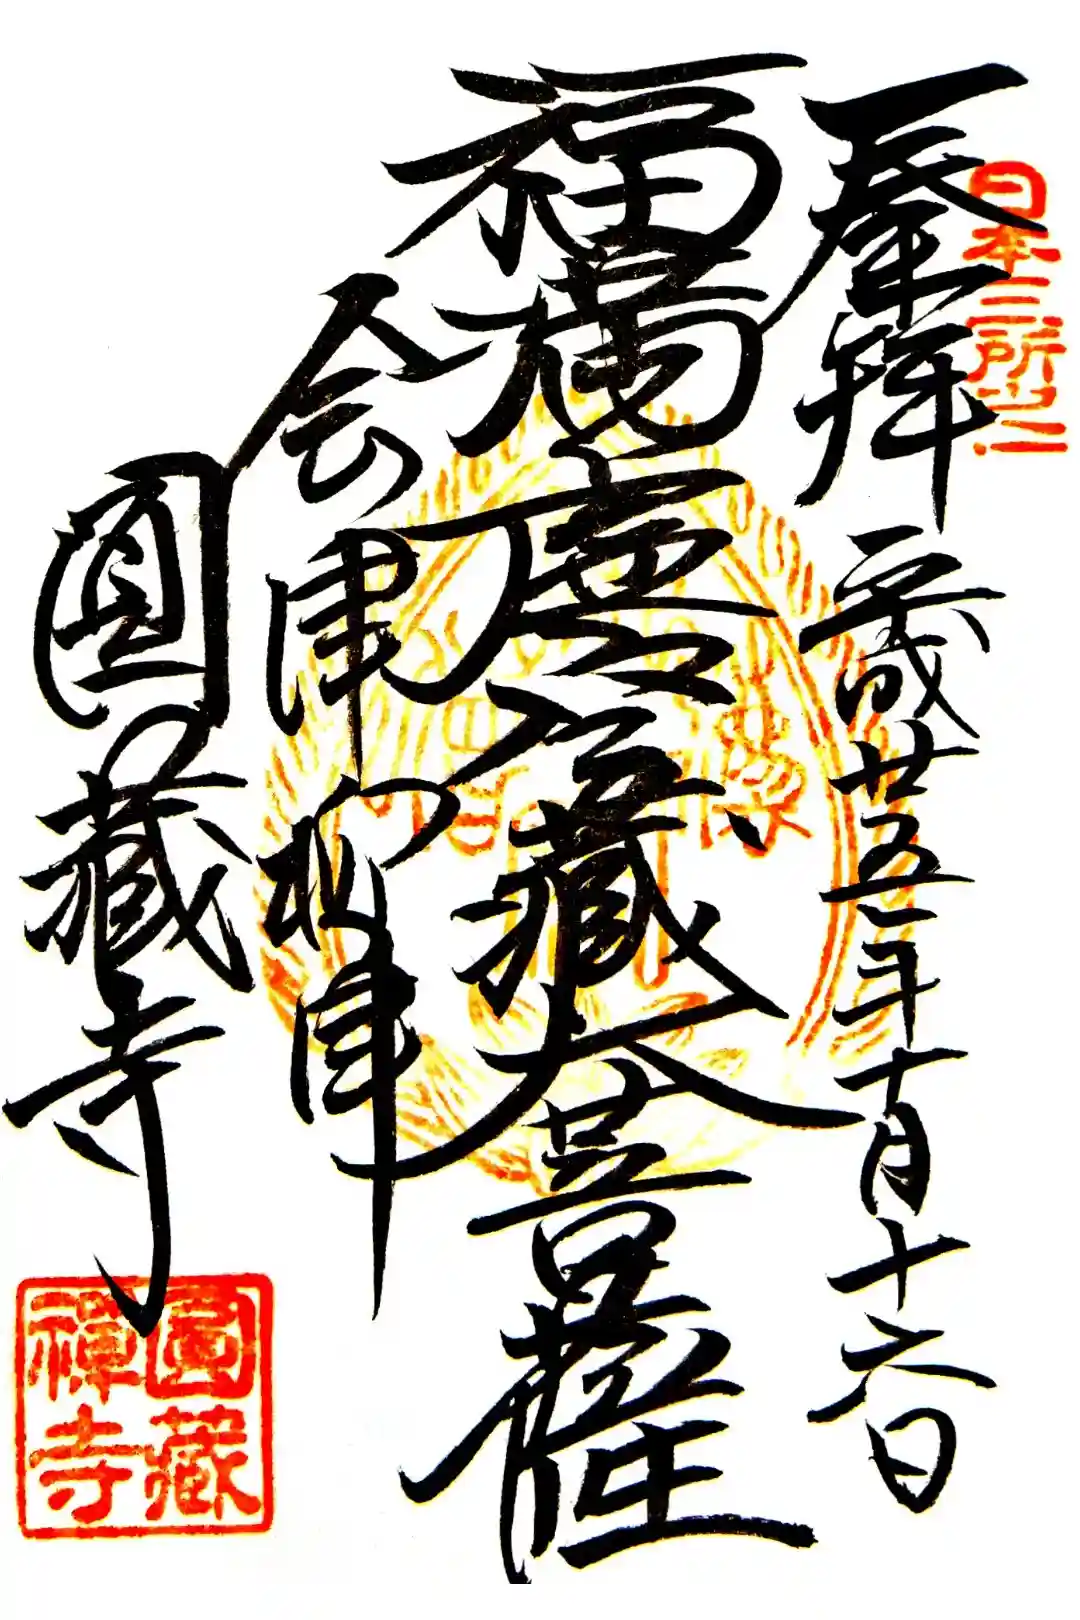 日本三所之一
奉拝 平成廿五年十一月十六日
福満虚空藏大菩薩
会津柳津
圓藏寺
圓藏
禪寺